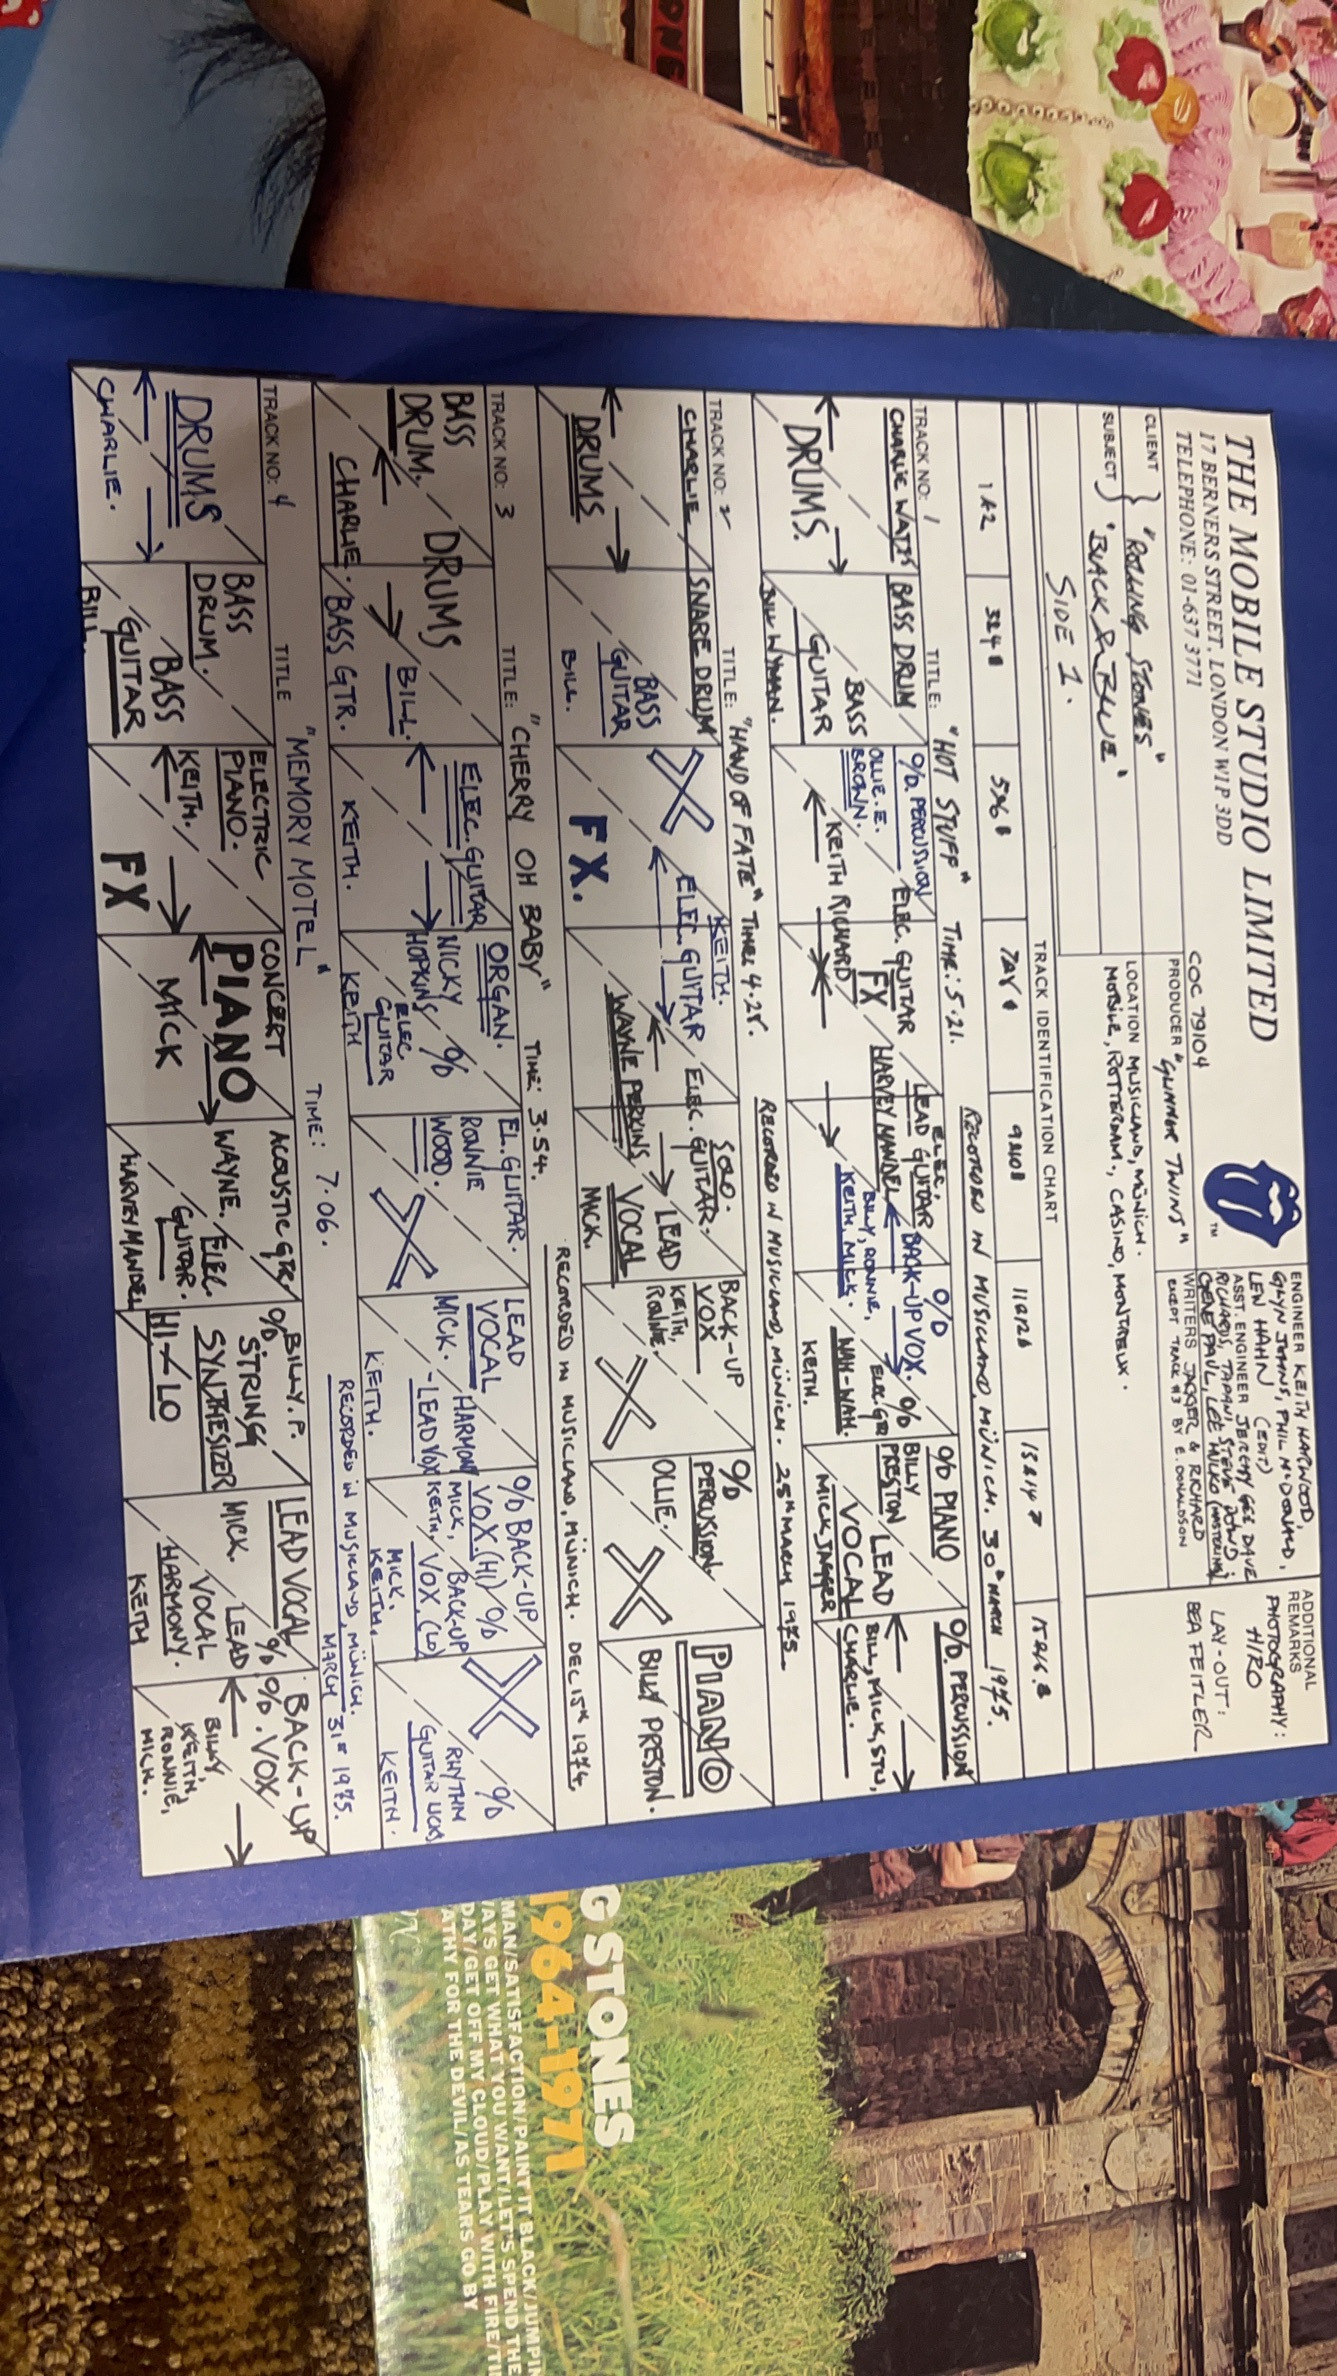 THE MOBILE STUDIO LIMITED
17 BERNERS STREET, LONDON W1P 3DD
TELEPHONE: 01-637 3771
COC 79104
CLIENT
SUBJECT
"ROLLING STONES"
'BLACK & BLUE'
SIDE 1.
PRODUCER "GLIMMER TWINS"
LOCATION MUSICLAND, MÜNICH.
MOBILE, ROTTERDAM., CASINO, MONTREUX.
ENGINEER KEITH HARWOOD,
GLYN JOHNS, PHIL McDONALD,
LEW HAHN (EDIT)
ASST. ENGINEER JEREMY GEE DAVE
RICHARDS, TAPANI, STEVE DOWD;
GENE PAUL, LEE HULKO (MASTERING)
WRITERS JAGGER & RICHARD
EXCEPT TRACK #3 BY E. DONALDSON
ADDITIONAL
REMARKS
HIRO
PHOTOGRAPHY:
LAY-OUT:
BEA FEITLER
TRACK IDENTIFICATION CHART
1&2
TRACK NO: 1
TITLE: "HOT STUFF" TIME: 5.21.
RECORDED IN MUSICLAND, MÜNICH. 30th MARCH 1975.
CHARLIE WATTS
DRUMS.
BASS DRUM
BASS
GUITAR
BILL WYMAN.
% PERCUSSION
OLLIE. E.
BROWN.
KEITH RICHARD
ELEC. GUITAR
FX
ELEC.
LEAD GUITAR
HARVEY MANDEL
% BACK-UP VOX.
BILLY, RONNIE,
KEITH, MICK.
% ELEC. GTR
WAH-WAH.
KEITH.
% PIANO
BILLY
PRESTON
LEAD
VOCAL
MICK JAGGER
% PERCUSSION
BILL, MICK, STU,
CHARLIE.
TRACK NO: 2
TITLE: "HAND OF FATE" TIME: 4.28.
RECORDED IN MUSICLAND, MÜNICH. 25th MARCH 1975
CHARLIE
DRUMS
SNARE DRUM
BASS
GUITAR
BILL.
X
FX.
KEITH.
ELEC. GUITAR
SOLO.
ELEC. GUITAR.
WAYNE PERKINS
LEAD
VOCAL
MICK.
BACK-UP
VOX
KEITH,
RONNIE.
X
% PERCUSSION.
OLLIE.
X
PIANO
BILLY PRESTON.
TRACK NO: 3
TITLE: "CHERRY OH BABY" TIME: 3.54.
RECORDED IN MUSICLAND, MÜNICH. DEC 15th 1974.
BASS
DRUM.
DRUMS
CHARLIE.
BILL.
BASS GTR.
ELEC. GUITAR
KEITH.
ORGAN.
NICKY
HOPKINS
% ELEC
GUITAR
KEITH
EL. GUITAR.
RONNIE
WOOD.
X
LEAD
VOCAL
MICK.
HARMONY
-LEAD VOX
KEITH.
% BACK-UP
VOX. (HI)
MICK,
KEITH,
% BACK-UP
VOX. (LO)
MICK.
KEITH,
X
% RHYTHM
GUITAR LICKS
KEITH.
TRACK NO: 4
TITLE "MEMORY MOTEL" TIME: 7.06.
RECORDED IN MUSICLAND, MÜNICH.
MARCH 31st 1975.
DRUMS
CHARLIE.
BASS
DRUM.
BASS
GUITAR
BILL
ELECTRIC
PIANO.
KEITH.
FX
CONCERT
PIANO
MICK
ACOUSTIC GTR.
WAYNE.
ELEC.
GUITAR.
HARVEY MANDEL
BILLY. P.
% STRING
SYNTHESIZER
HI - LO
LEAD VOCAL
MICK.
% LEAD
VOCAL
HARMONY.
KEITH
% BACK-UP
VOX
BILLY,
KEITH,
RONNIE,
MICK.
G STONES
1964-1971
MAN/SATISFACTION/PAINT IT BLACK/JUMPIN
AYS GET WHAT YOU WANT/LET'S SPEND THE
DAY/GET OFF MY CLOUD/PLAY WITH FIRE/TI
ATHY FOR THE DEVIL/AS TEARS GO BY